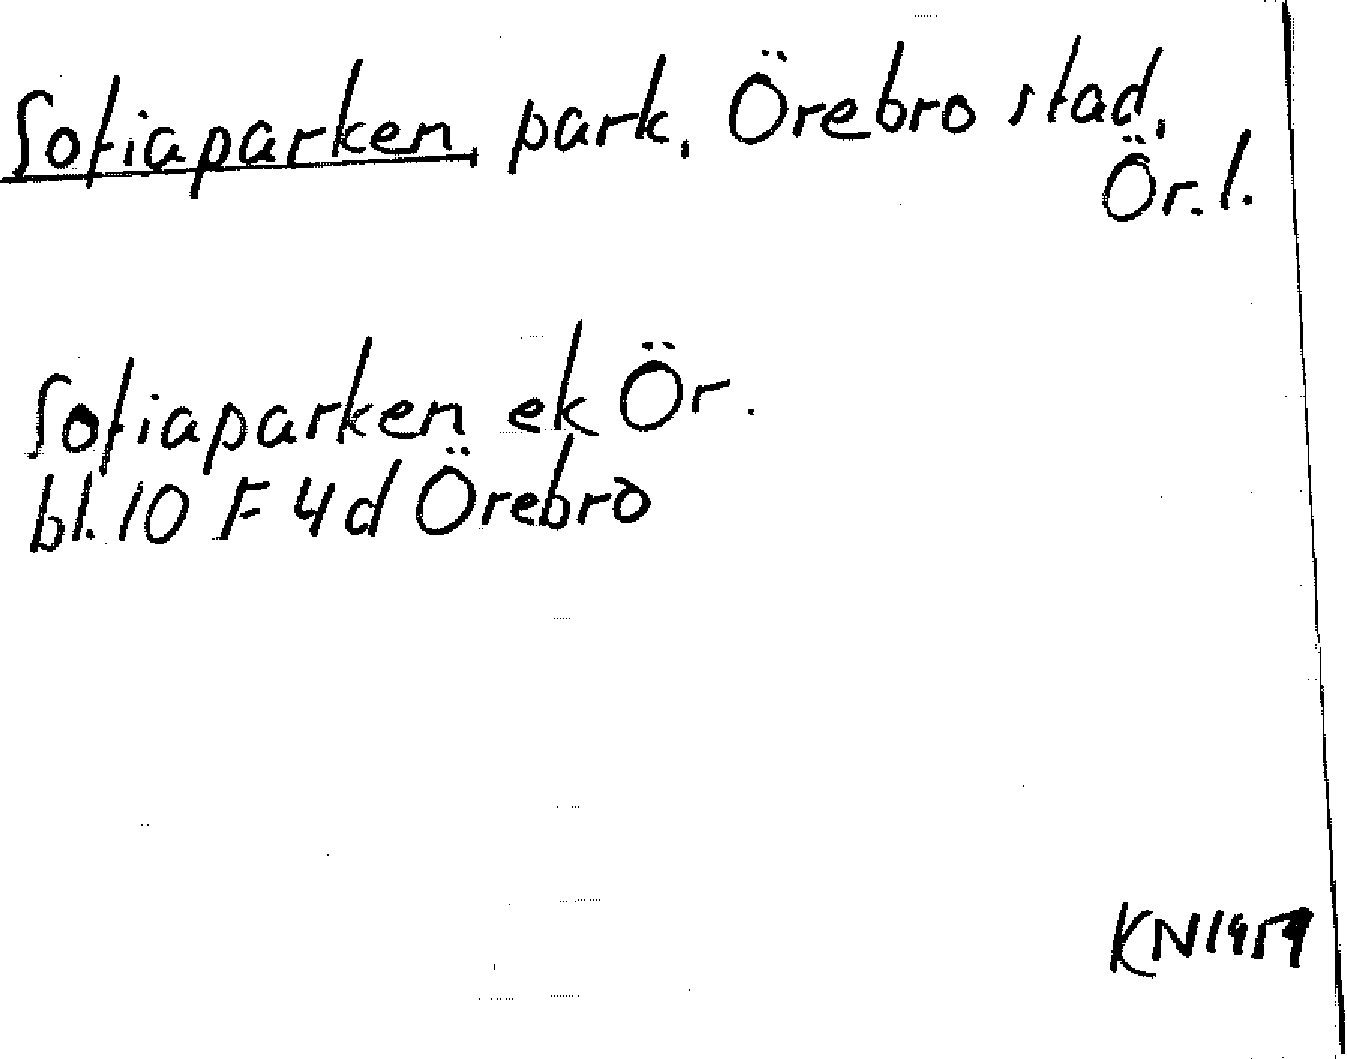 Sofiaparken, park, Örebro stad,
Ör. l.
Sofiaparken ek Ör.
bl. 10 F 4 d Örebro
KN 1959